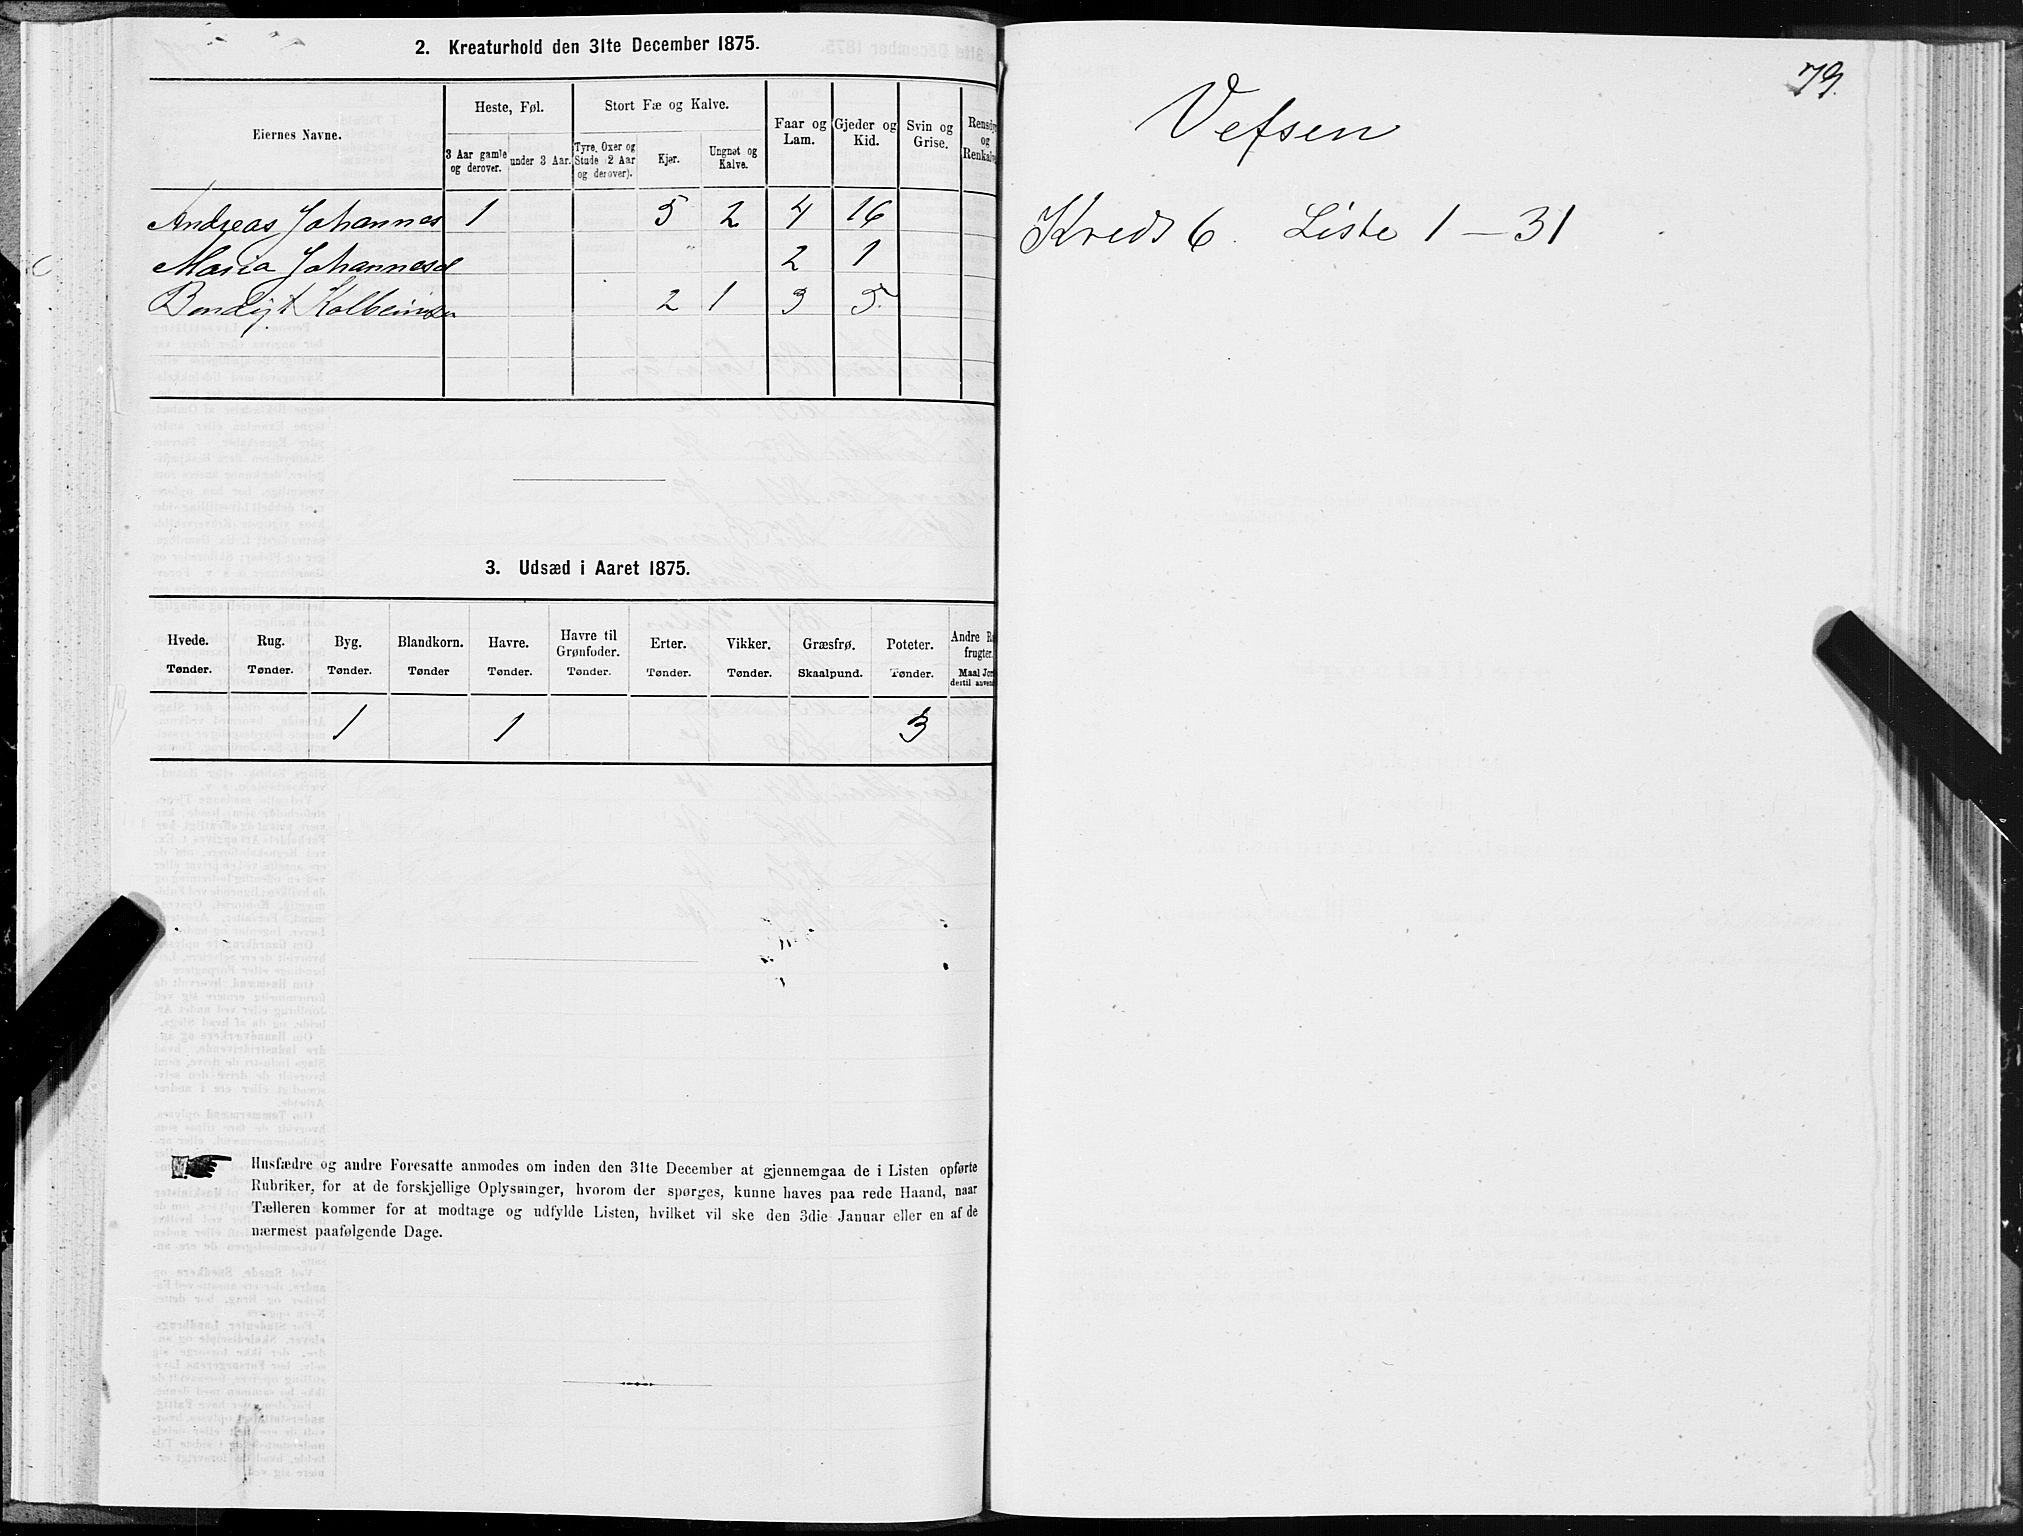 2. Kreaturhold den 31te December 1875.
Eiernes Navne.
Heste, Føl.
3 Aar gamle og derover.
under 3 Aar.
Stort Fæ og Kalve.
Tyre, Oxer og Stude (2 Aar og derover).
Kjør.
Ungnøt og Kalve.
Faar og Lam.
Gjeder og Kid.
Svin og Grise.
Rensdyr og Renkalve
Andreas Johannes 1 5 2 4 16
Maria Johannesd 2 1
Bendigt Kolbeinsen 2 1 3 5
3. Udsæd i Aaret 1875.
Hvede. Rug. Byg. Blandkorn. Havre. Havre til Grønfoder. Erter. Vikker. Græsfrø. Poteter. Andre frugter.
Tønder. Tønder. Tønder. Tønder Tønder. Tønder. Tønder. Tønder. Skaalpund. Tønder. Maal Jor destil anven
1 1 3
Husfædre og andre Foresatte anmodes om inden den 31te December at gjennemgaa de i Listen opførte
Rubriker, for at de forskjellige Oplysninger, hvorom der spørges, kunne haves paa rede Haand, naar
Tælleren kommer for at modtage og udfylde Listen, hvilket vil ske den 3die Januar eller en af de
nærmest paafølgende Dage.
79.
Vefsen
Kreds 6. Liste 1 - 31